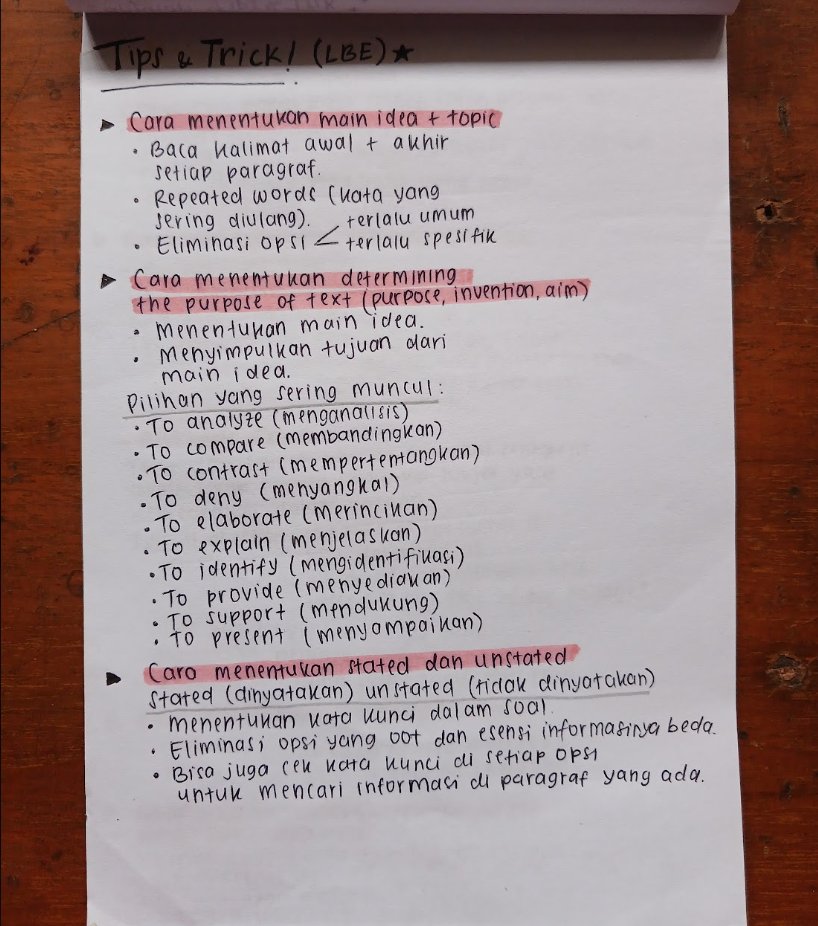 Tips & Trick! (LBE) ★
► Cara menentukan main idea + topic
• Baca kalimat awal + akhir
setiap paragraf.
• Repeated words (kata yang
sering diulang).
• Eliminasi opsi < terlalu umum
terlalu spesifik
► Cara menentukan determining
the purpose of text (purpose, invention, aim)
• Menentukan main idea.
• Menyimpulkan tujuan dari
main idea.
Pilihan yang sering muncul:
• To analyze (menganalisis)
• To compare (membandingkan)
• To contrast (mempertentangkan)
• To deny (menyangkal)
• To elaborate (merincikan)
• To explain (menjelaskan)
• To identify (mengidentifikasi)
• To provide (menyediakan)
• To support (mendukung)
• To present (menyampaikan)
► Cara menentukan stated dan unstated
stated (dinyatakan) unstated (tidak dinyatakan)
• menentukan kata kunci dalam soal.
• Eliminasi opsi yang oot dan esensi informasinya beda.
• Bisa juga cek kata kunci di setiap opsi
untuk mencari informasi di paragraf yang ada.